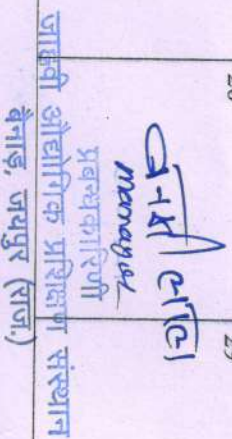 manager
प्रबन्धकारिणी
जाह्नवी औद्योगिक प्रशिक्षण संस्थान
बैनाड़, जयपुर (राज.)